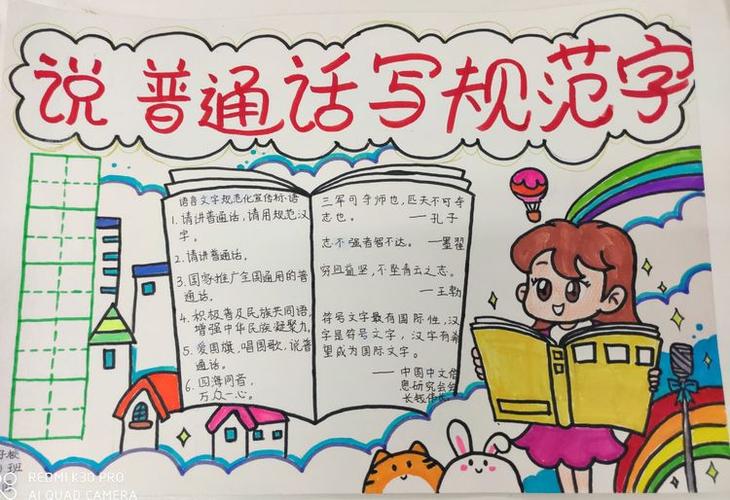 说普通话写规范字
语言文字规范化宣传标语
1.请讲普通话,请用规范汉
字。
2.请讲普通话。
3.国家推广全国通用的普
通话。
4.积极普及民族共同语,
增强中华民族凝聚力。
5.爱国旗,唱国歌,说普
通话。
6.四海同音,
万众一心。
三军可夺师也,匹夫不可夺
志也。 ——孔子
志不强者智不达。 ——墨翟
穷且益坚,不坠青云之志。
——王勃
符号文字最有国际性,汉
字是符号文字,汉字有希
望成为国际文字。
——中国中文信
息研究会会
长钱伟长
班
REDMI K30 PRO
AI QUAD CAMERA